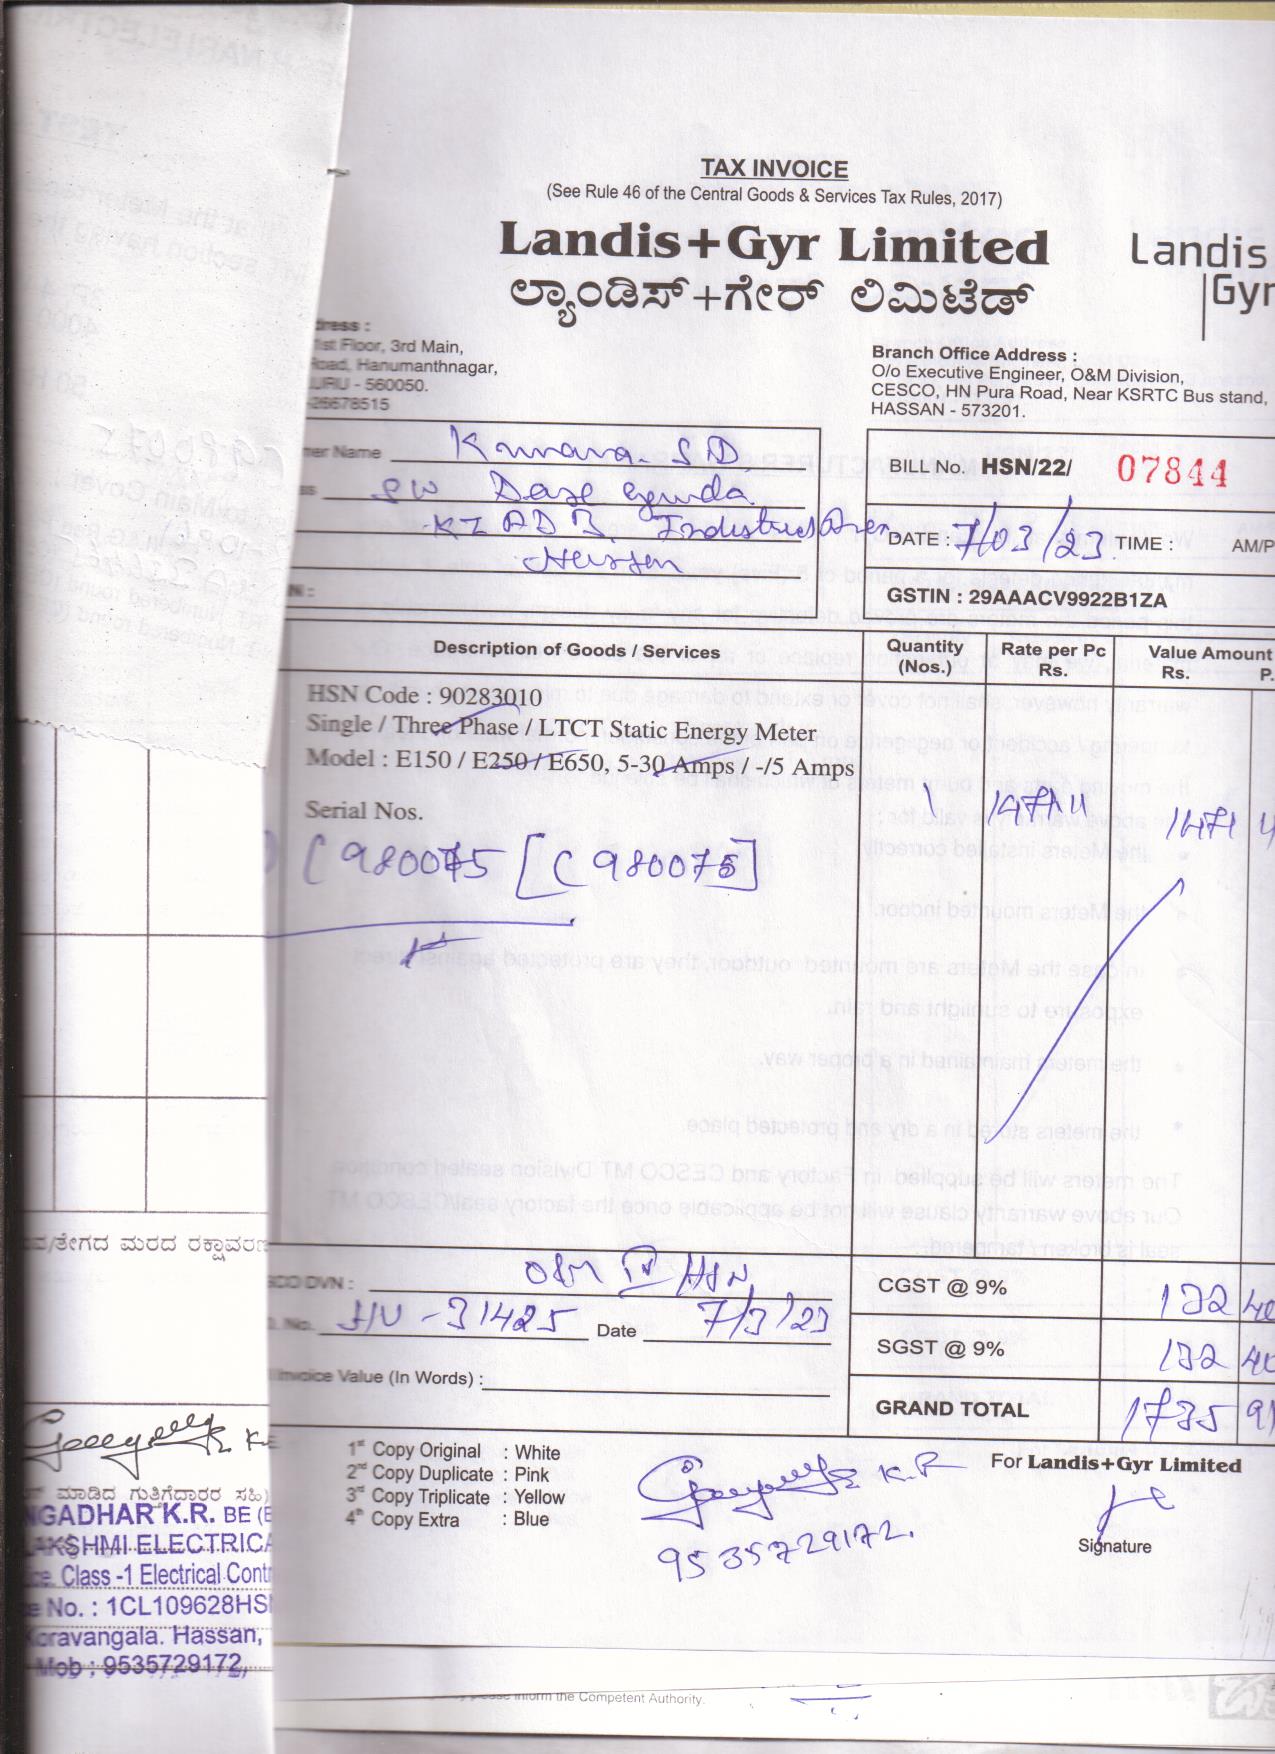 TAX INVOICE
(See Rule 46 of the Central Goods & Services Tax Rules, 2017)
Landis+Gyr Limited
Landis
Gyr
ಲ್ಯಾಂಡಿಸ್+ಗೇರ್ ಲಿಮಿಟೆಡ್
dress :
1st Floor, 3rd Main,
Road, Hanumanthnagar,
URU - 560050.
26678515
Branch Office Address :
O/o Executive Engineer, O&M Division,
CESCO, HN Pura Road, Near KSRTC Bus stand,
HASSAN - 573201.
ner Name Kumara S D
ss S/o Dase gowda
KIADB, Industrial Area
Hassan
N :
BILL No. HSN/22/ 07844
DATE : 7/03/23 TIME : AM/P
GSTIN : 29AAACV9922B1ZA
Description of Goods / Services Quantity (Nos.) Rate per Pc Rs. Value Amount Rs. P.
HSN Code : 90283010
Single / Three Phase / LTCT Static Energy Meter
Model : E150 / E250 / E650, 5-30 Amps / -/5 Amps
Serial Nos.
1 1471 11 1471 11
C980075 [C980075]
ವ/ತೇಗದ ಮರದ ರಕ್ಷಾವರಣ
SCO DVN : O&M HSN
No. 31425 Date 7/3/23
Invoice Value (In Words) :
CGST @ 9% 132 40
SGST @ 9% 132 40
GRAND TOTAL 1735 91
1st Copy Original : White
2nd Copy Duplicate : Pink
3rd Copy Triplicate : Yellow
4th Copy Extra : Blue
K.R
9535729172.
For Landis+Gyr Limited
Signature
ಮಾಡಿದ ಗುತ್ತಿಗೆದಾರರ ಸಹಿ)
NGADHAR K.R. BE (E
LAKSHMI ELECTRICA
ice. Class -1 Electrical Contr
e No. : 1CL109628HSN
Koravangala. Hassan,
Mob : 9535729172,
please inform the Competent Authority.